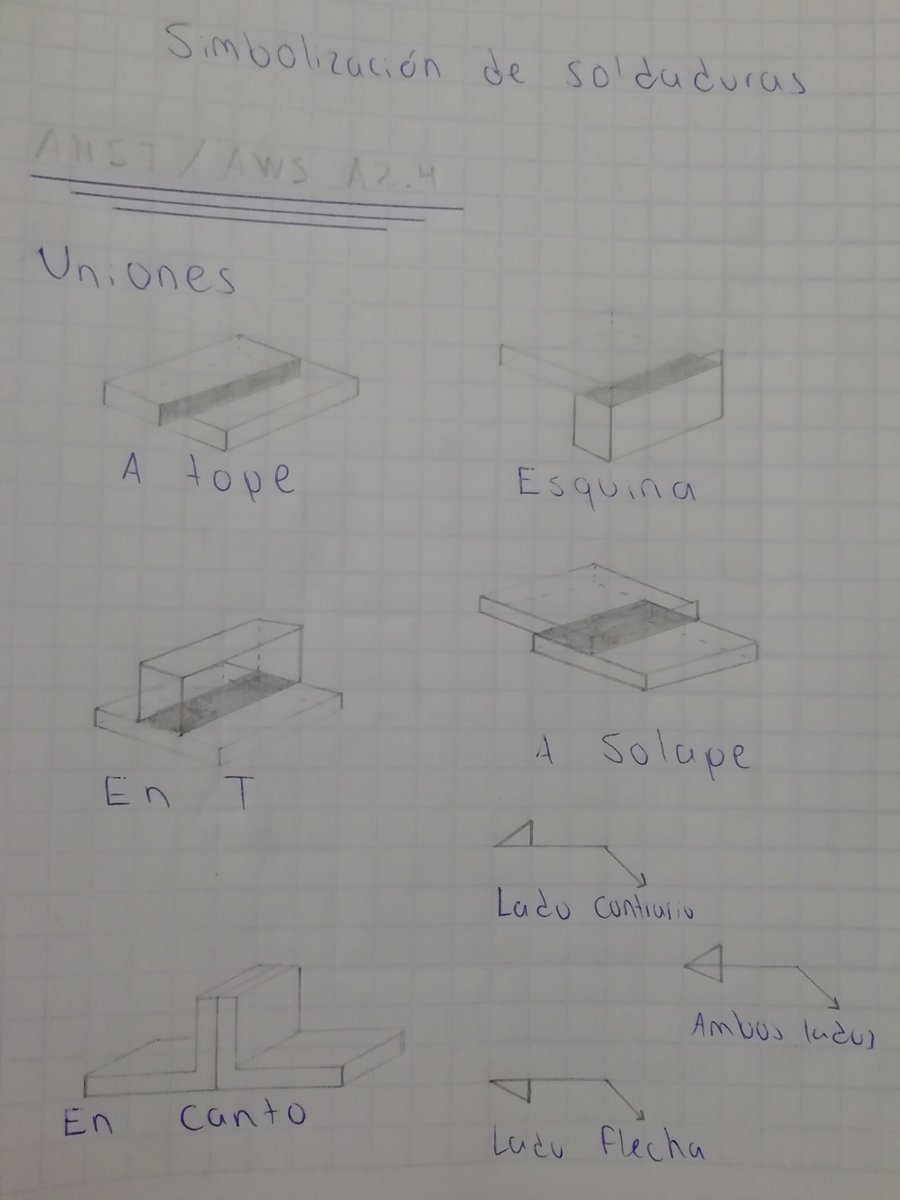 Simbolización de soldaduras
ANSI / AWS A2.4
Uniones
A tope
Esquina
En T
A Solape
Lado contrario
Ambos lados
En Canto
Lado flecha